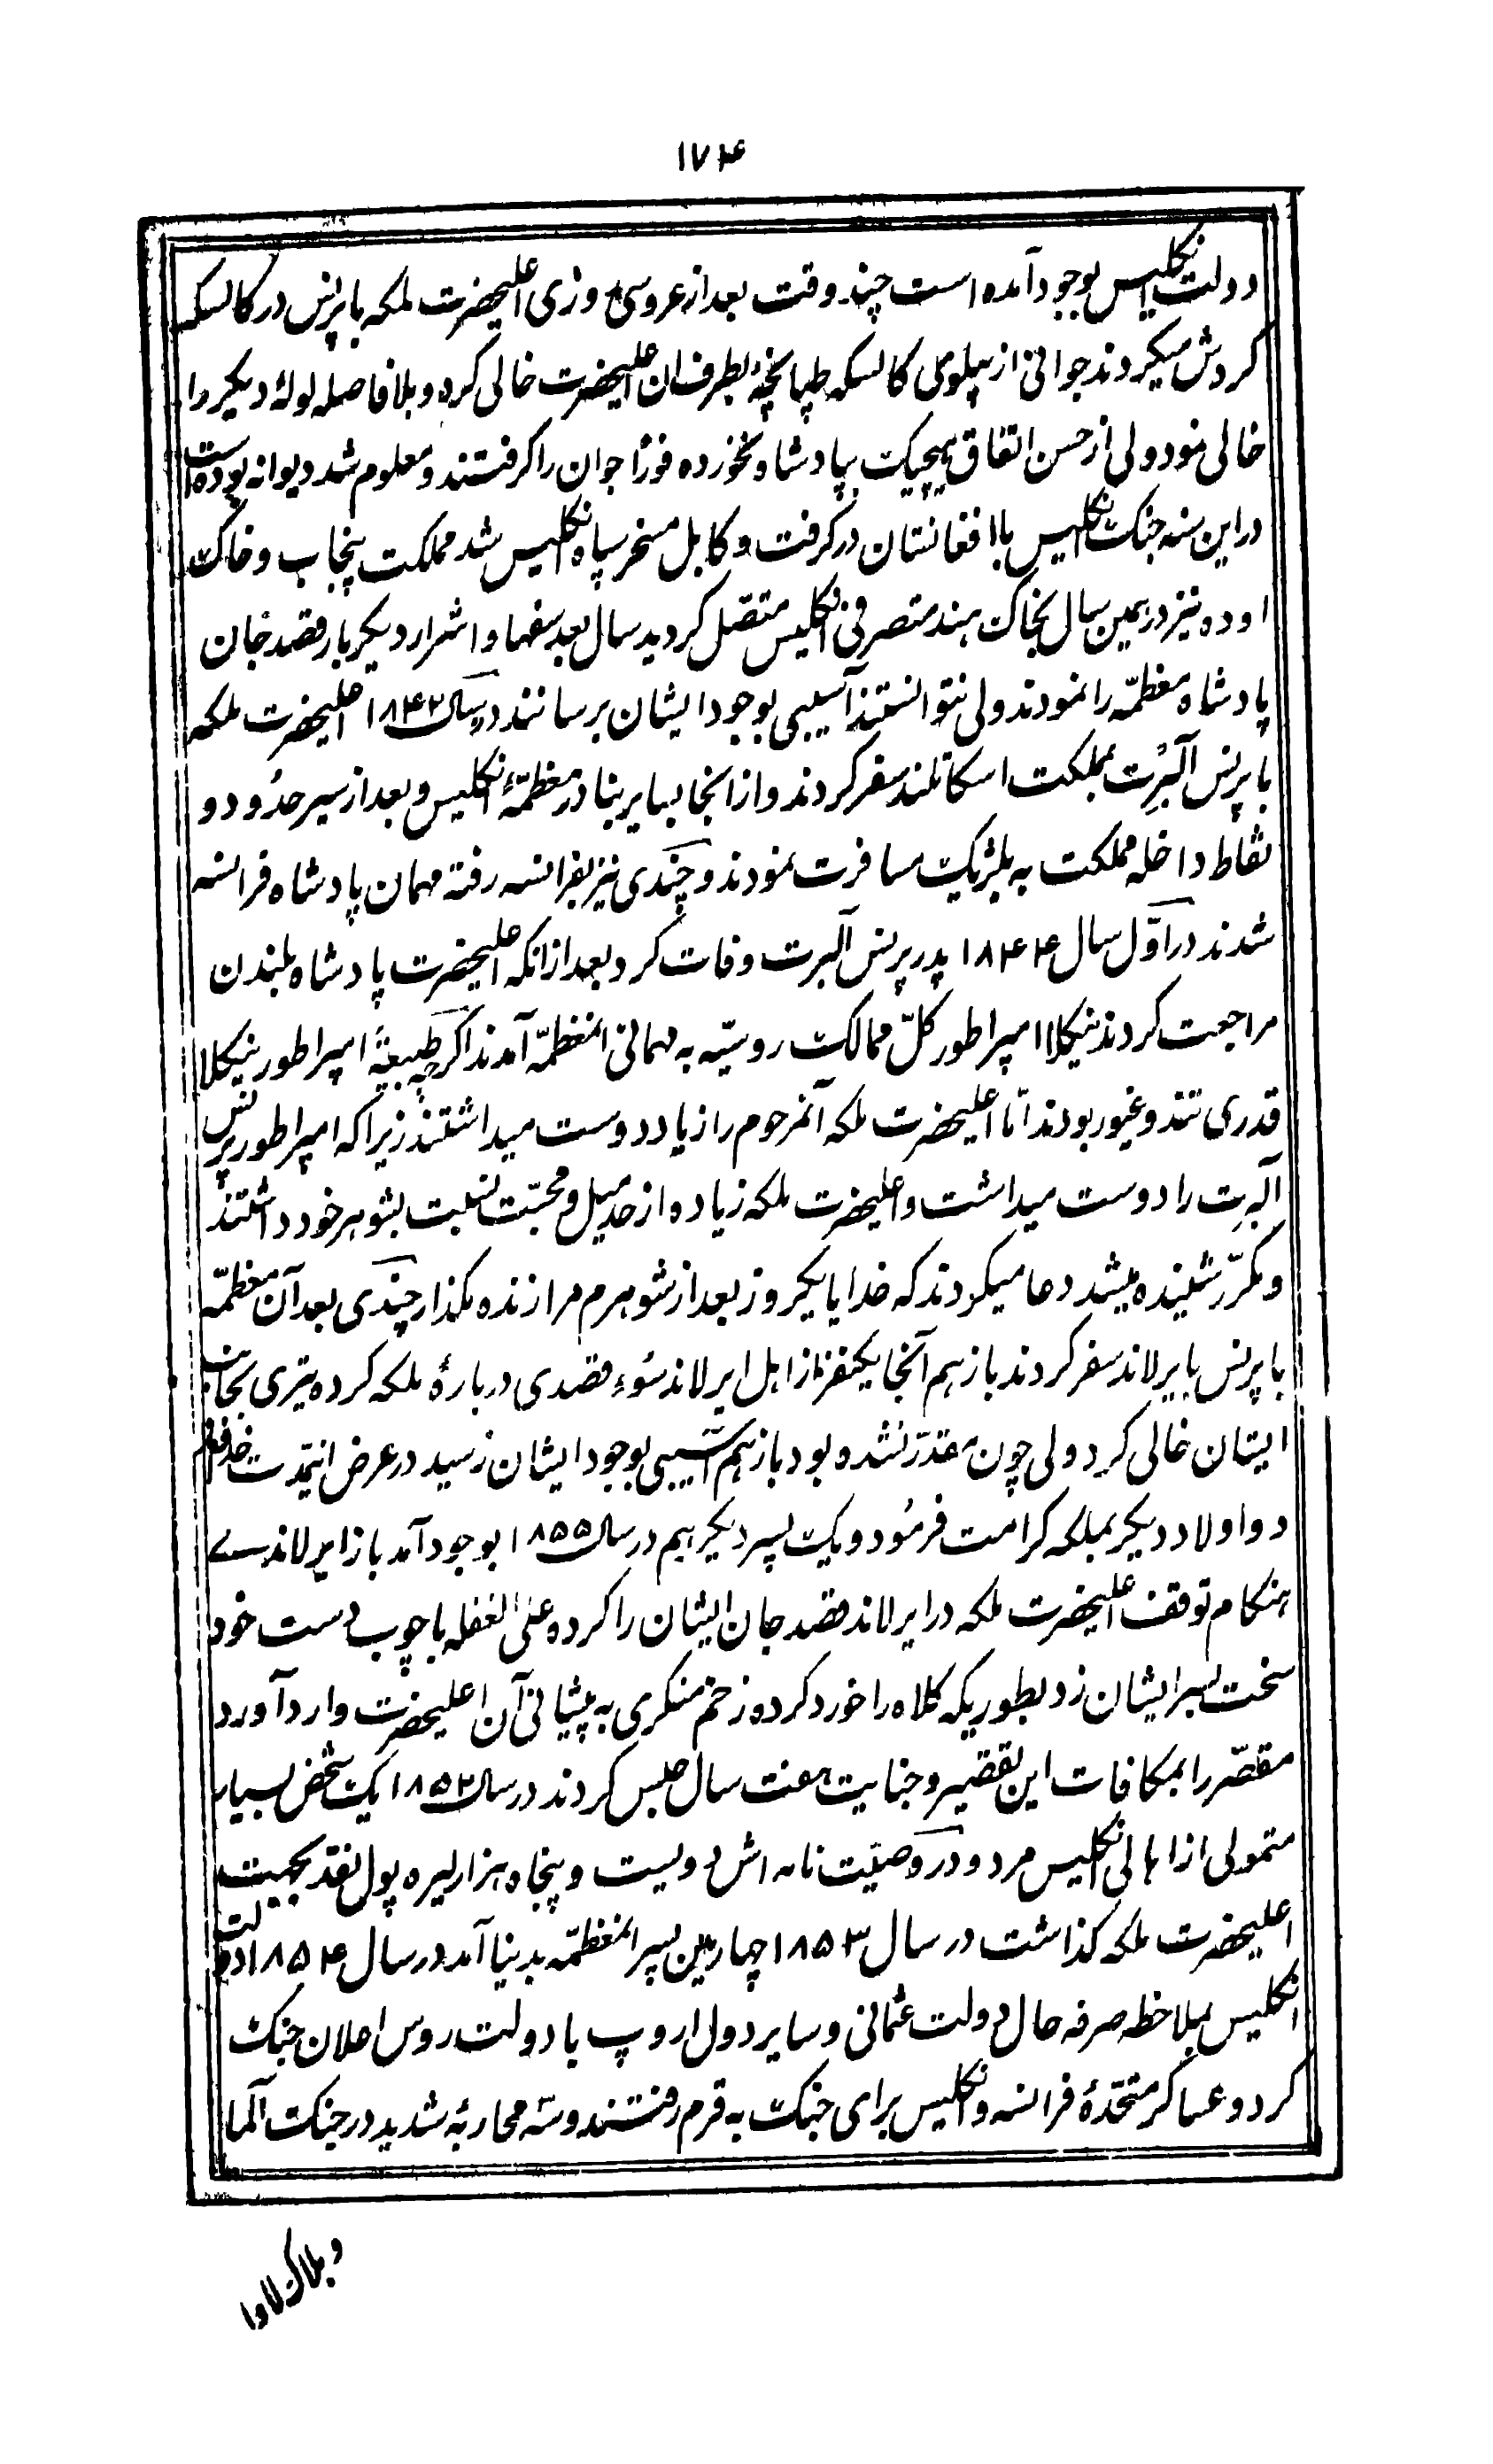 ۱۷۴
دولت انکلیس بوجود آمده است چند وقت بعد از عروسی روزی اعلیحضرت ملکه با پرنس در کالسکه
کردش میکردند جوانی از پهلوی کالسکه طپانچهٔ بطرف ان اعلیحضرت خالی کرده و بلافاصله لولهٔ دیکر را
خالی نمود ولی از حسن اتفاق هیچیک بپادشاه نخورده فوراً جوان را کرفتند و معلوم شد دیوانه بوده است
در این سنه جنک انکلیس با افغانستان در کرفت و کابل مسخر سپاه انکلیس شد مملکت پنجاب و خاک
اوده نیز در همین سال بخاک هند متصرفی انکلیس متصل کردید سال بعد سفها و اشرار دیکر بار قصد جان
پادشاه معظمّه را نمودند ولی نتوانستند آسیبی بوجود ایشان برسانند در سال ۱۸۴۲ اعلیحضرت ملکه
با پرنس آلبرت بمملکت اسکاتلند سفر کردند و از انجا بسایر بنادر معظمهٔ انکلیس و بعد از سیر حدود و
نقاط داخله مملکت به بلژیک مسافرت نمودند و چندی نیز بفرانسه رفته مهمان پادشاه فرانسه
شدند در اوّل سال ۱۸۴۴ پدر پرنس آلبرت وفات کرد بعد از انکه اعلیحضرت پادشاه بلندن
مراجعت کردند نیکلا امپراطور کلّ ممالک روسیّه به مهمانی انمعظمّه آمدند اکرچه طبیعةً امپراطور نیکلا
قدری تند و غیور بودند امّا اعلیحضرت ملکه آنمرحوم را زیاد دوست میداشتند زیرا که امپراطور پرنس
آلبرت را دوست میداشت و اعلیحضرت ملکه زیاده از حد میل و محبّت نسبت بشوهر خود داشتند
و مکرّر شنیده میشد دعا میکردند که خدایا یکروز بعد از شوهرم مرا زنده مکذار چندی بعد آن معظمّه
با پرنس بایرلاند سفر کردند باز هم آنجا یکنفر از اهل ایرلاند سوء قصدی دربارهٔ ملکه کرده تیری بجانب
ایشان خالی کرد ولی چون مقدّر نشده بود باز هم آسیبی بوجود ایشان نرسید در عرض اینمدت
دو اولاد دیکر بملکه کرامت فرمود و یک پسر دیکر هم در سال ۱۸۵۵ بوجود آمد باز ایرلاندی
هنکام توقف اعلیحضرت ملکه در ایرلاند قصد جان ایشان را کرده علی الغفله با چوب دست خود
سخت بسر ایشان زد بطوریکه کلاه را خورد کرده زخم منکری به پیشانی آن اعلیحضرت وارد آورد
مقصّر را بمکافات این تقصیر و جنایت هفت سال حبس کردند در سال ۱۸۵۲ یک شخص بسیار
متمولی از اهالی انکلیس مرد و در وصیّت نامه اش دویست و پنجاه هزار لیره پول نقد بجهت
اعلیحضرت ملکه کذاشت در سال ۱۸۵۳ چهارمین پسر انمعظمّه بدنیا آمد در سال ۱۸۵۴ دولت
انکلیس بملاحظه صرفه حال دولت عثمانی و سایر دول اروپ با دولت روس اعلان جنک
کرد و عساکر متحّدهٔ فرانسه و انکلیس برای جنک به قرم رفتند و سّه محاربهٔ شدید در جنک آلما